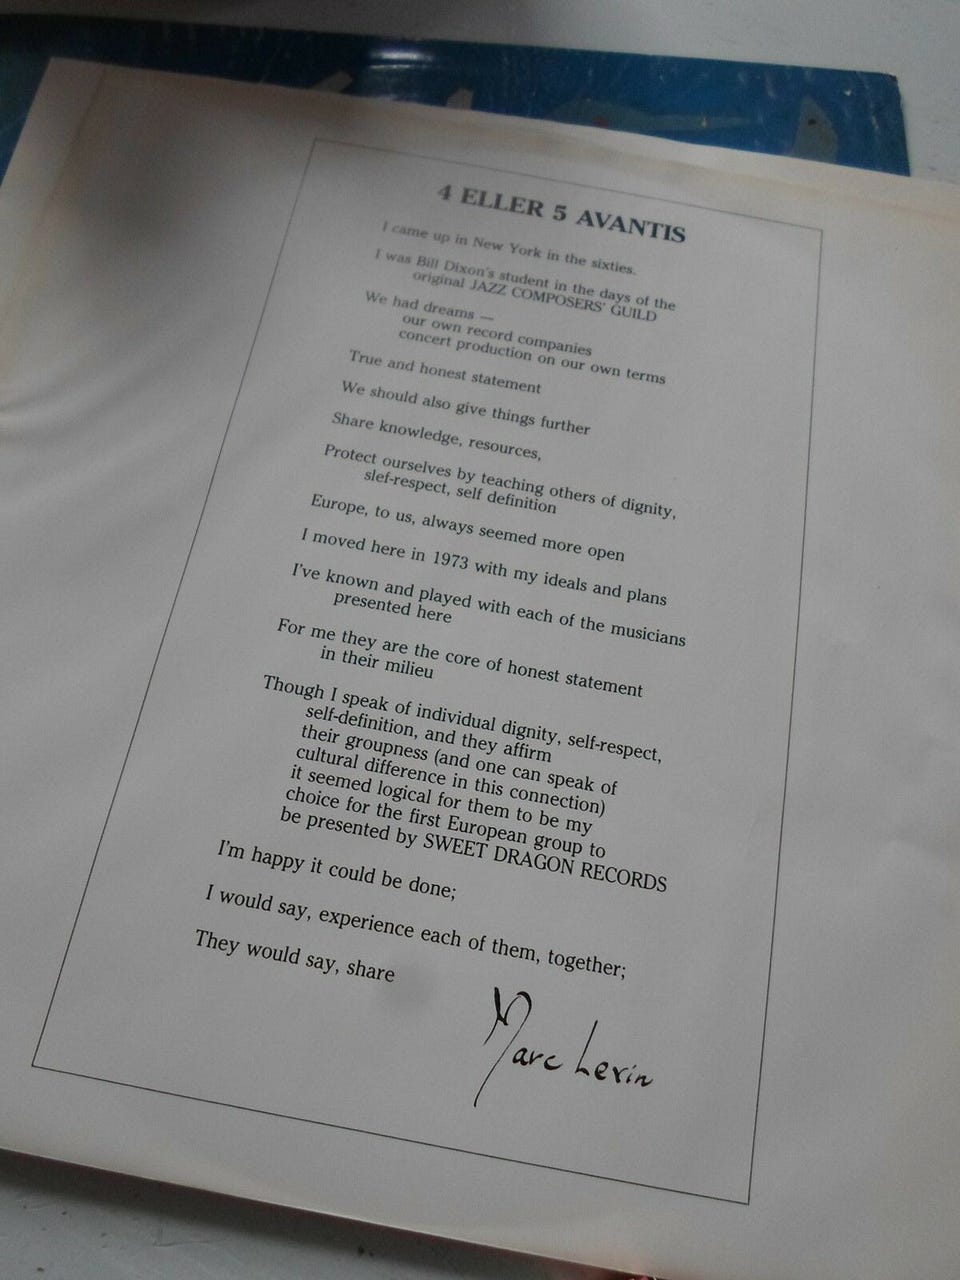 4 ELLER 5 AVANTIS
I came up in New York in the sixties.
I was Bill Dixon's student in the days of the
original JAZZ COMPOSERS' GUILD
We had dreams —
our own record companies
concert production on our own terms
True and honest statement
We should also give things further
Share knowledge, resources,
Protect ourselves by teaching others of dignity,
slef-respect, self definition
Europe, to us, always seemed more open
I moved here in 1973 with my ideals and plans
I've known and played with each of the musicians
presented here
For me they are the core of honest statement
in their milieu
Though I speak of individual dignity, self-respect,
self-definition, and they affirm
their groupness (and one can speak of
cultural difference in this connection)
it seemed logical for them to be my
choice for the first European group to
be presented by SWEET DRAGON RECORDS
I'm happy it could be done;
I would say, experience each of them, together;
They would say, share
Marc Levin